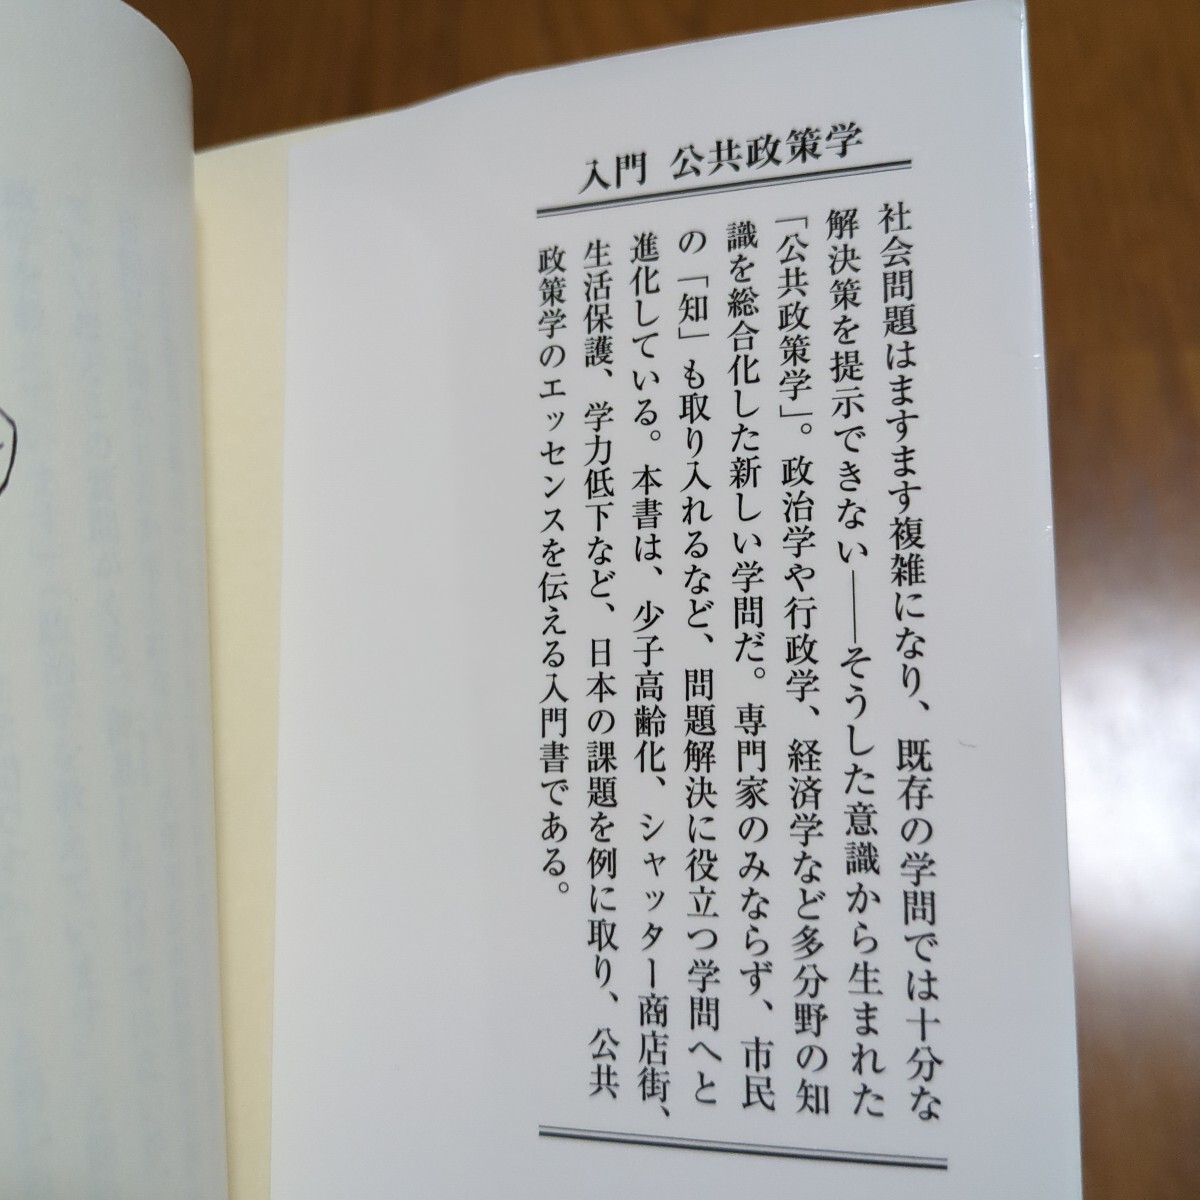 入門 公共政策学
社会問題はますます複雑になり、既存の学問では十分な
解決策を提示できない――そうした意識から生まれた
「公共政策学」。政治学や行政学、経済学など多分野の知
識を総合化した新しい学問だ。専門家のみならず、市民
の「知」も取り入れるなど、問題解決に役立つ学問へと
進化している。本書は、少子高齢化、シャッター商店街、
生活保護、学力低下など、日本の課題を例に取り、公共
政策学のエッセンスを伝える入門書である。